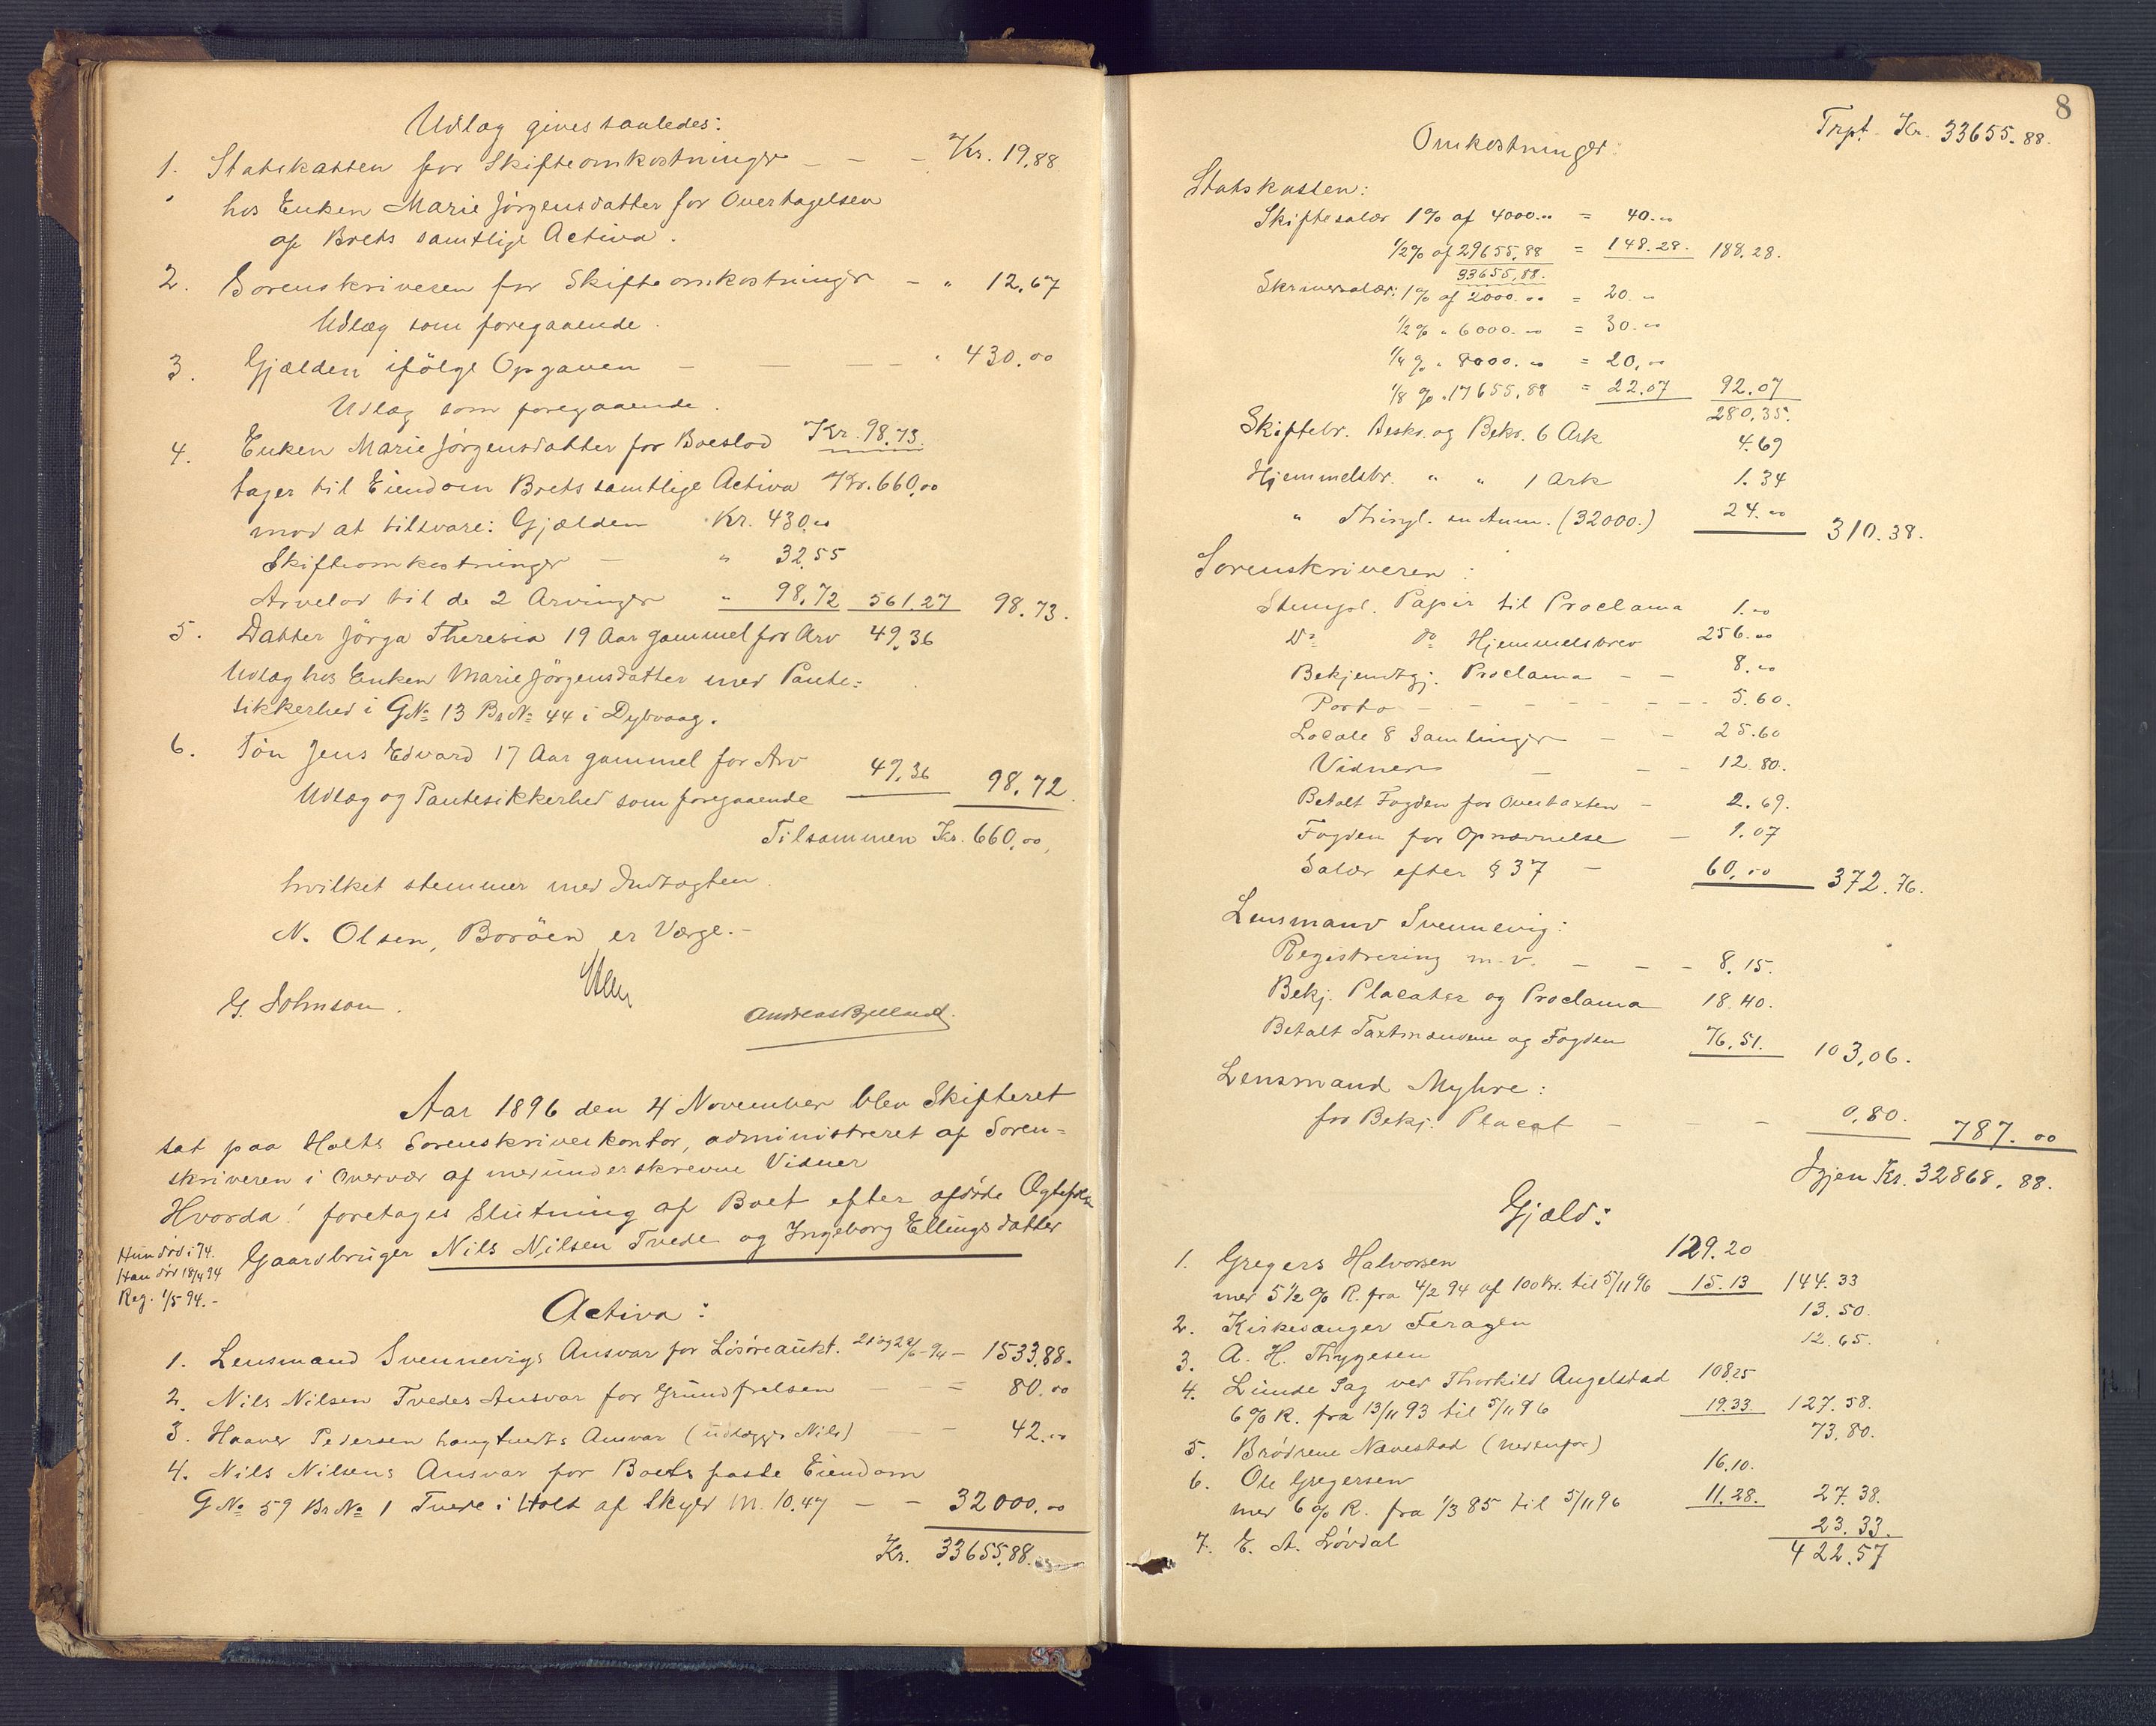 Udlæg gives saaledes:
1. Statskassen for Skifteomkostninger — — — Kr. 19,88
hos Enken Marie Jörgensdatter for Overtagelsen
af Boets samtlige Activa.
2. Sorenskriveren for Skifteomkostninger — " 12,67
Udlæg som foregaaende.
3. Gjælden ifölge Opgaven — — — — " 430,00
Udlæg som foregaaende.
4. Enken Marie Jörgensdatter for Boeslod Kr. 98,73
tager til Eiendom Boets samtlige Activa Kr. 660,00
mod at tilsvare: Gjælden Kr. 430,00
Skifteomkostninger — " 32,55
Arvelod til de 2 Arvinger " 98,72 561,27 98,73.
5. Datter Jörga Theresia 19 Aar gammel for Arv 49,36
Udlæg hos Enken Marie Jörgensdatter med Pante-
sikkerhed i G№ 13 Br№ 44 i Dybvaag.
6. Sön Jens Edvard 17 Aar gammel for Arv 49,36 98,72
Udlæg og Pantesikkerhed som foregaaende
Tilsammen Kr. 660,00,
hvilket stemmer med Indtægten.
N. Olsen, Boröen er Værge.—
G. Johnson.
Andreas Bjelland.
Aar 1896 den 4 November blev Skifteret
sat paa Holts Sorenskriverkontor, administreret af Soren-
skriveren i Overvær af medunderskrevne Vidner
Hvorda! foretages Slutning af Boet efter afdöde Ægtefolk
Gaardbruger Nils Nilsen Tvede og Ingeborg Ellingsdatter
Hun död i 74.
Han död 18/4 94
Reg. 1/5 94.-
Activa:
1. Lensmand Svennevigs Ansvar for Lösöreaukt. 21 og 22/6-94 — 1533,88.
2. Nils Nilsen Tvedes Ansvar for Grundfrelsen — — 80.00
3. Haaver Pedersen Ansvar (udlægges Nils) — — 42.00
4. Nils Nilsens Ansvar for Boets faste Eiendom
G№ 59 Br№ 1 Tvede i Holt af Skyld M. 10.47 — — 32000.00
Kr. 33655,88.
8
Trpt. Kr. 33655.88.
Omkostninger:
Statskassen:
Skiftesalær 1% af 4000.00 = 40.00
1/2% af 29655,88 = 148.28. 188.28.
33655,88.
Skriversalær: 1% af 2000.00 = 20.00
1/2% " 6000.00 = 30.00
1/4% " 8000.00 = 20,00
1/8 % " 17655,88 = 22.07 92.07
280,35.
Skiftebr. Beskr. og Bekr. 6 Ark 4.69
Hjemmelsbr. " " 1 Ark 1.34
" Thingl. en Anm. (32000.) 24.00 310.38.
Sorenskriveren:
Stempl. Papir til Proclama 1.00
Do do Hjemmelsbrev 256.00
Bekjendtgj. Proclama — — 8.00
Porto — — — — — — — 5.60.
Locale 8 Samlinger — — 25.60
Vidner — — — 12.80.
Betalt Fogden for Overtaxten — 2.69.
Fogden for Opnævnelse — 1.07
Salær efter § 37 — 60.00 372.76.
Lensmand Svennevig:
Registrering m.v. — — — 8.15.
Bekj. Placater og Proclama 18.40.
Betalt Taxtmændene og Fogden 76,51. 103,06.
Lensmand Myhre:
for Bekj. Placat — — 0,80. 787.00
Igjen Kr. 32868.88.
Gjæld:
1. Gregers Halvorsen 129.20
med 5 1/2 % R. fra 4/2 94 af 100 Kr. til 5/11 96 15.13 144.33
2. Kirkesanger Feragen 13.50.
3. A. H. Thygesen 12.65.
4. Lunde Sag ved Thorkild Angelstad 108.25
6% R. fra 13/11 93 til 5/11 96 19.33. 127.58.
5. Brödrene Nævestad (nedenfor) 73.80.
6. Ole Gregersen 16.10.
med 6% R. fra 1/3 85 til 5/11 96 11.28. 27.38.
7. E. A. Lövdal 23.33.
422.57